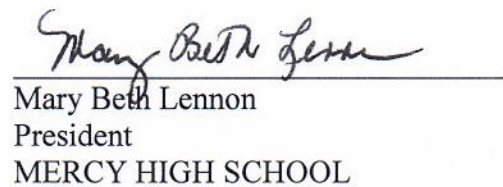 Mary Beth Lennon
Mary Beth Lennon
President
MERCY HIGH SCHOOL